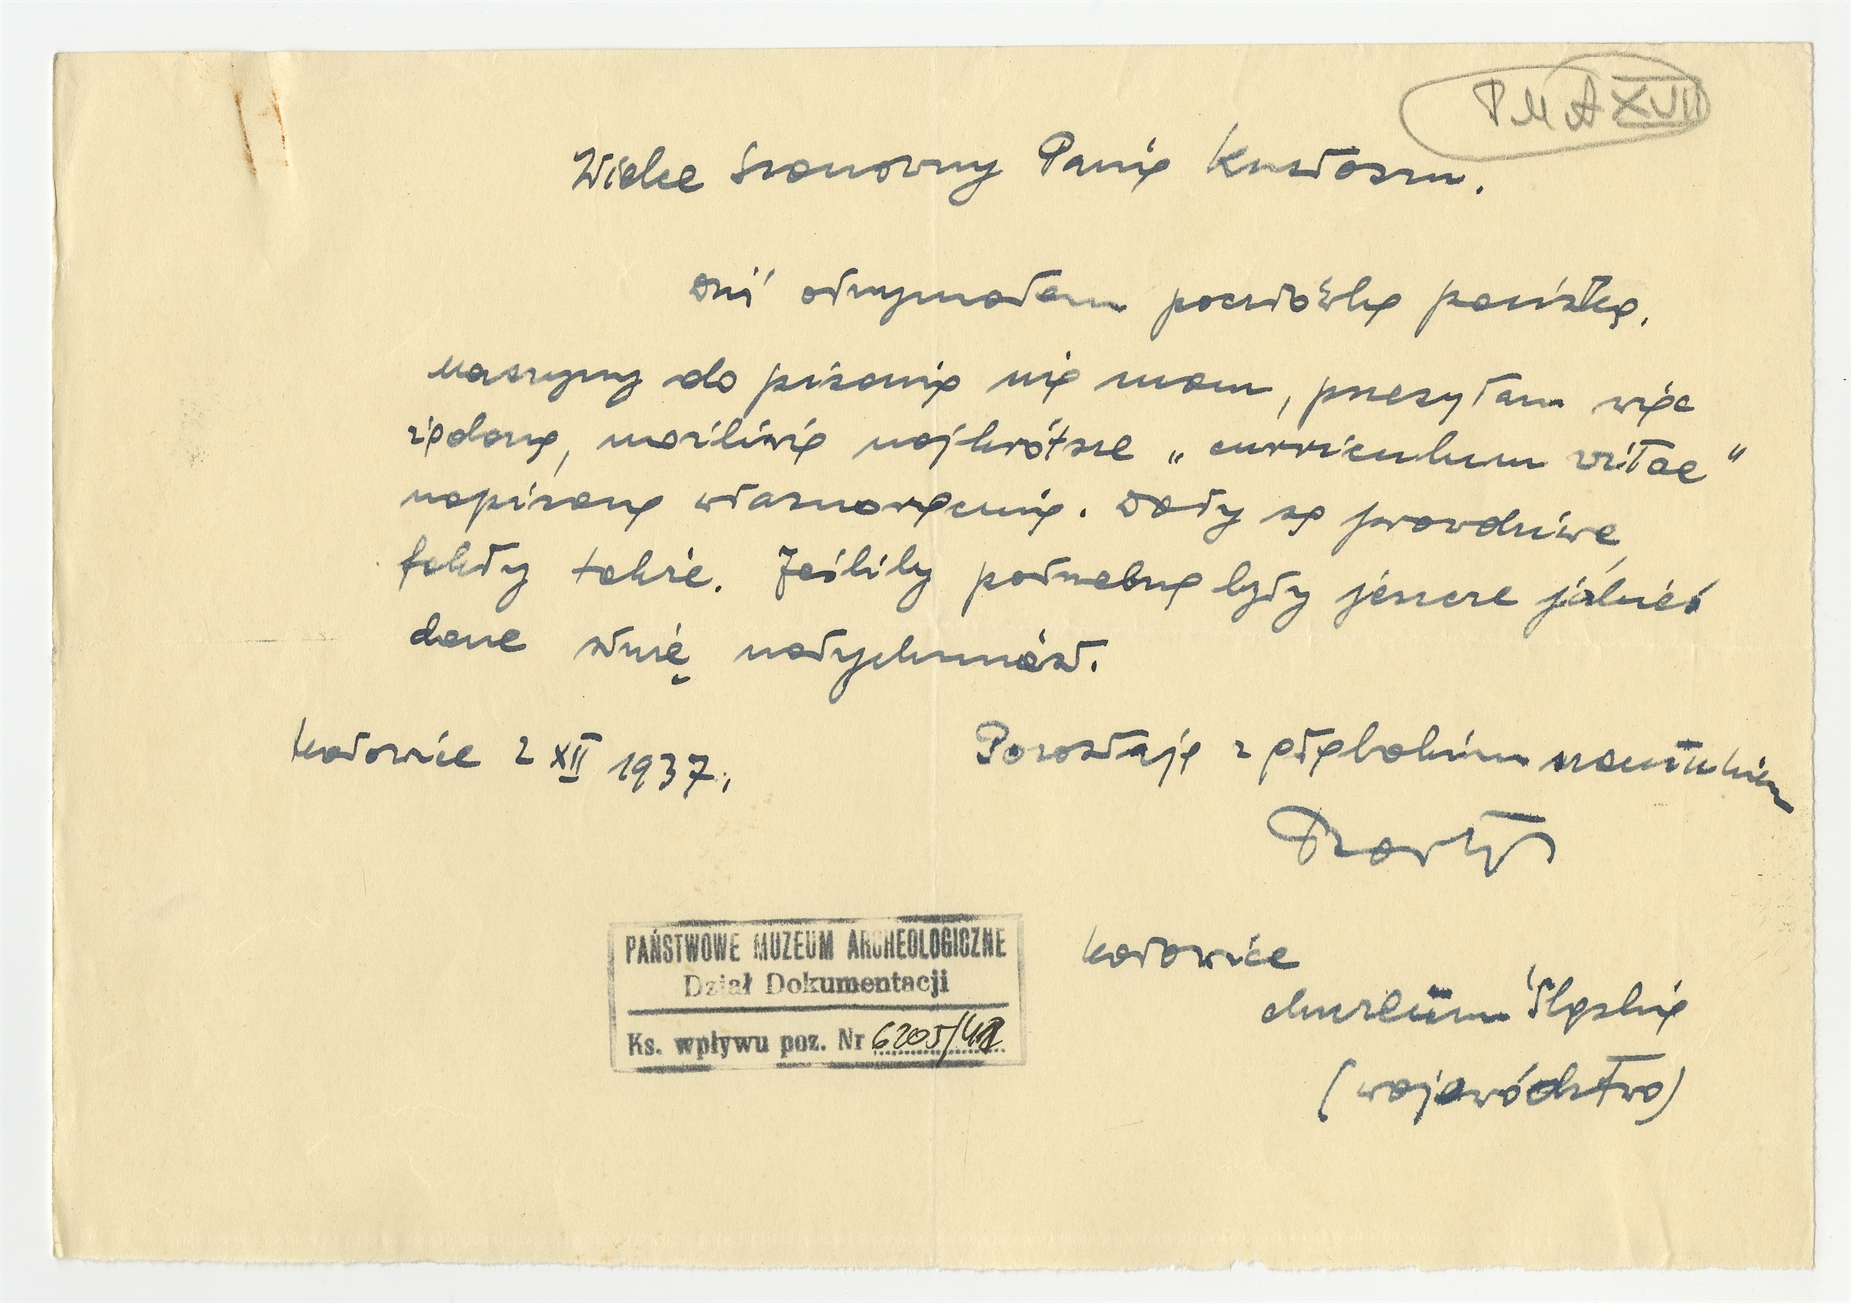 PMA XVII
Wielce Szanowny Panie Kustoszu.
Dziś otrzymałem pocztówkę pańską.
Maszyny do pisania nie mam, przesyłam więc
żądane, możliwie najkrótsze „curriculum vitae"
napisane własnoręcznie. Daty są prawdziwe,
fakty także. Jeśliby potrzebne były jeszcze jakieś
dane służę natychmiast.
Katowice 2 XII 1937.
Pozostaję z głębokim szacunkiem
Katowice
Muzeum Śląskie
(województwo)
PAŃSTWOWE MUZEUM ARCHEOLOGICZNE
Dział Dokumentacji
Ks. wpływu poz. Nr 6205/